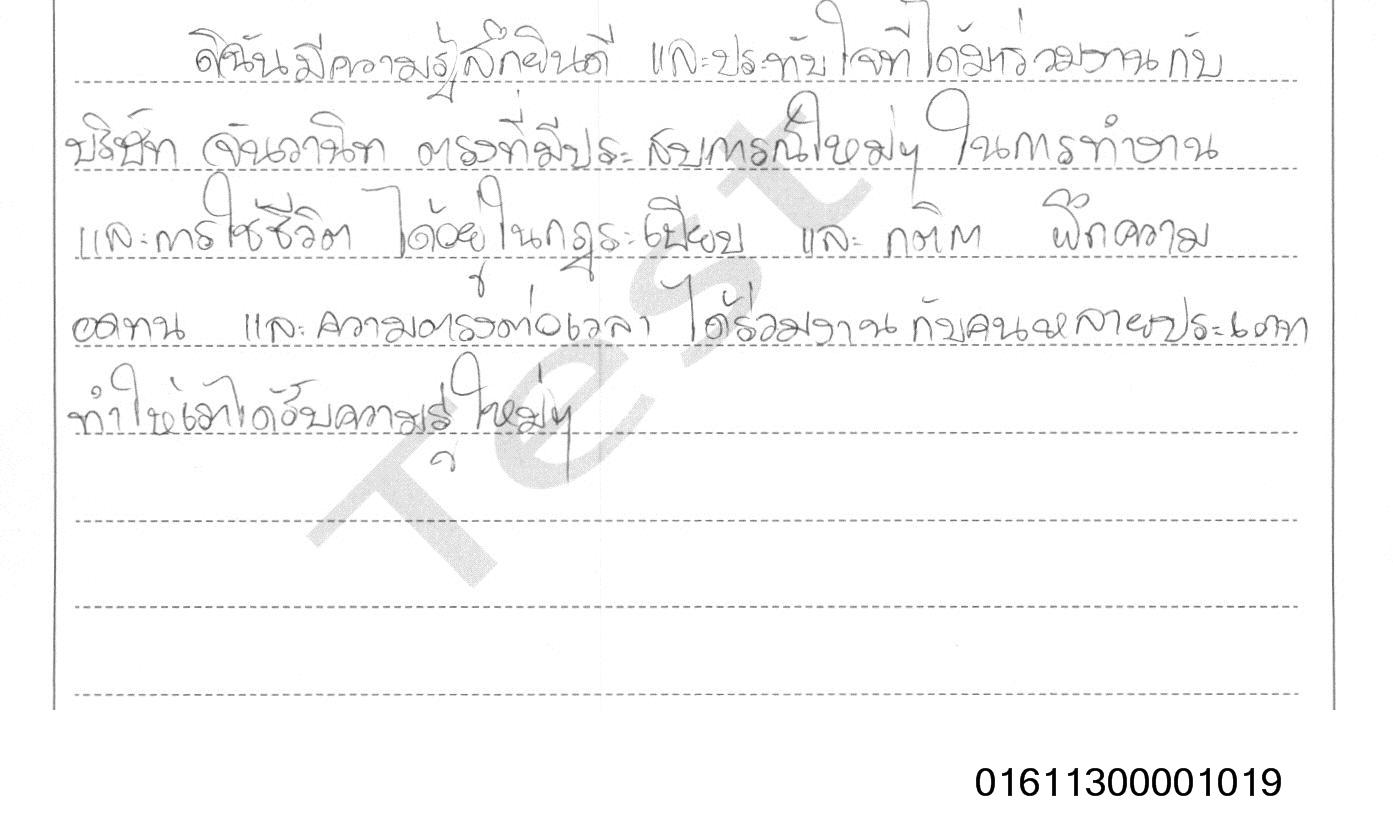 ดิฉันมีความรู้สึกยินดี และประทับใจที่ได้มาร่วมงานกับ
บริษัท จันวานิท ตรงที่มีประสบการณ์ใหม่ๆ ในการทำงาน
และการใช้ชีวิต ได้อยู่ในกฎระเบียบ และ กติกา ฝึกความ
อดทน และความตรงต่อเวลา ได้ร่วมงานกับคนหลายประเภท
ทำให้เราได้รับความรู้ใหม่ๆ
Test
01611300001019